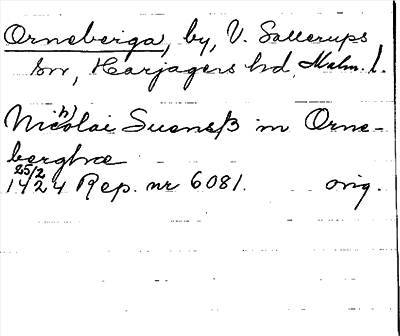 Orneberga, by, V. Sallerups
sn, Harjagers hd, Malm. l.
Nic(h)olai Suensß in Orne-
berghæ
25/2 1424 Rep. nr 6081. orig.